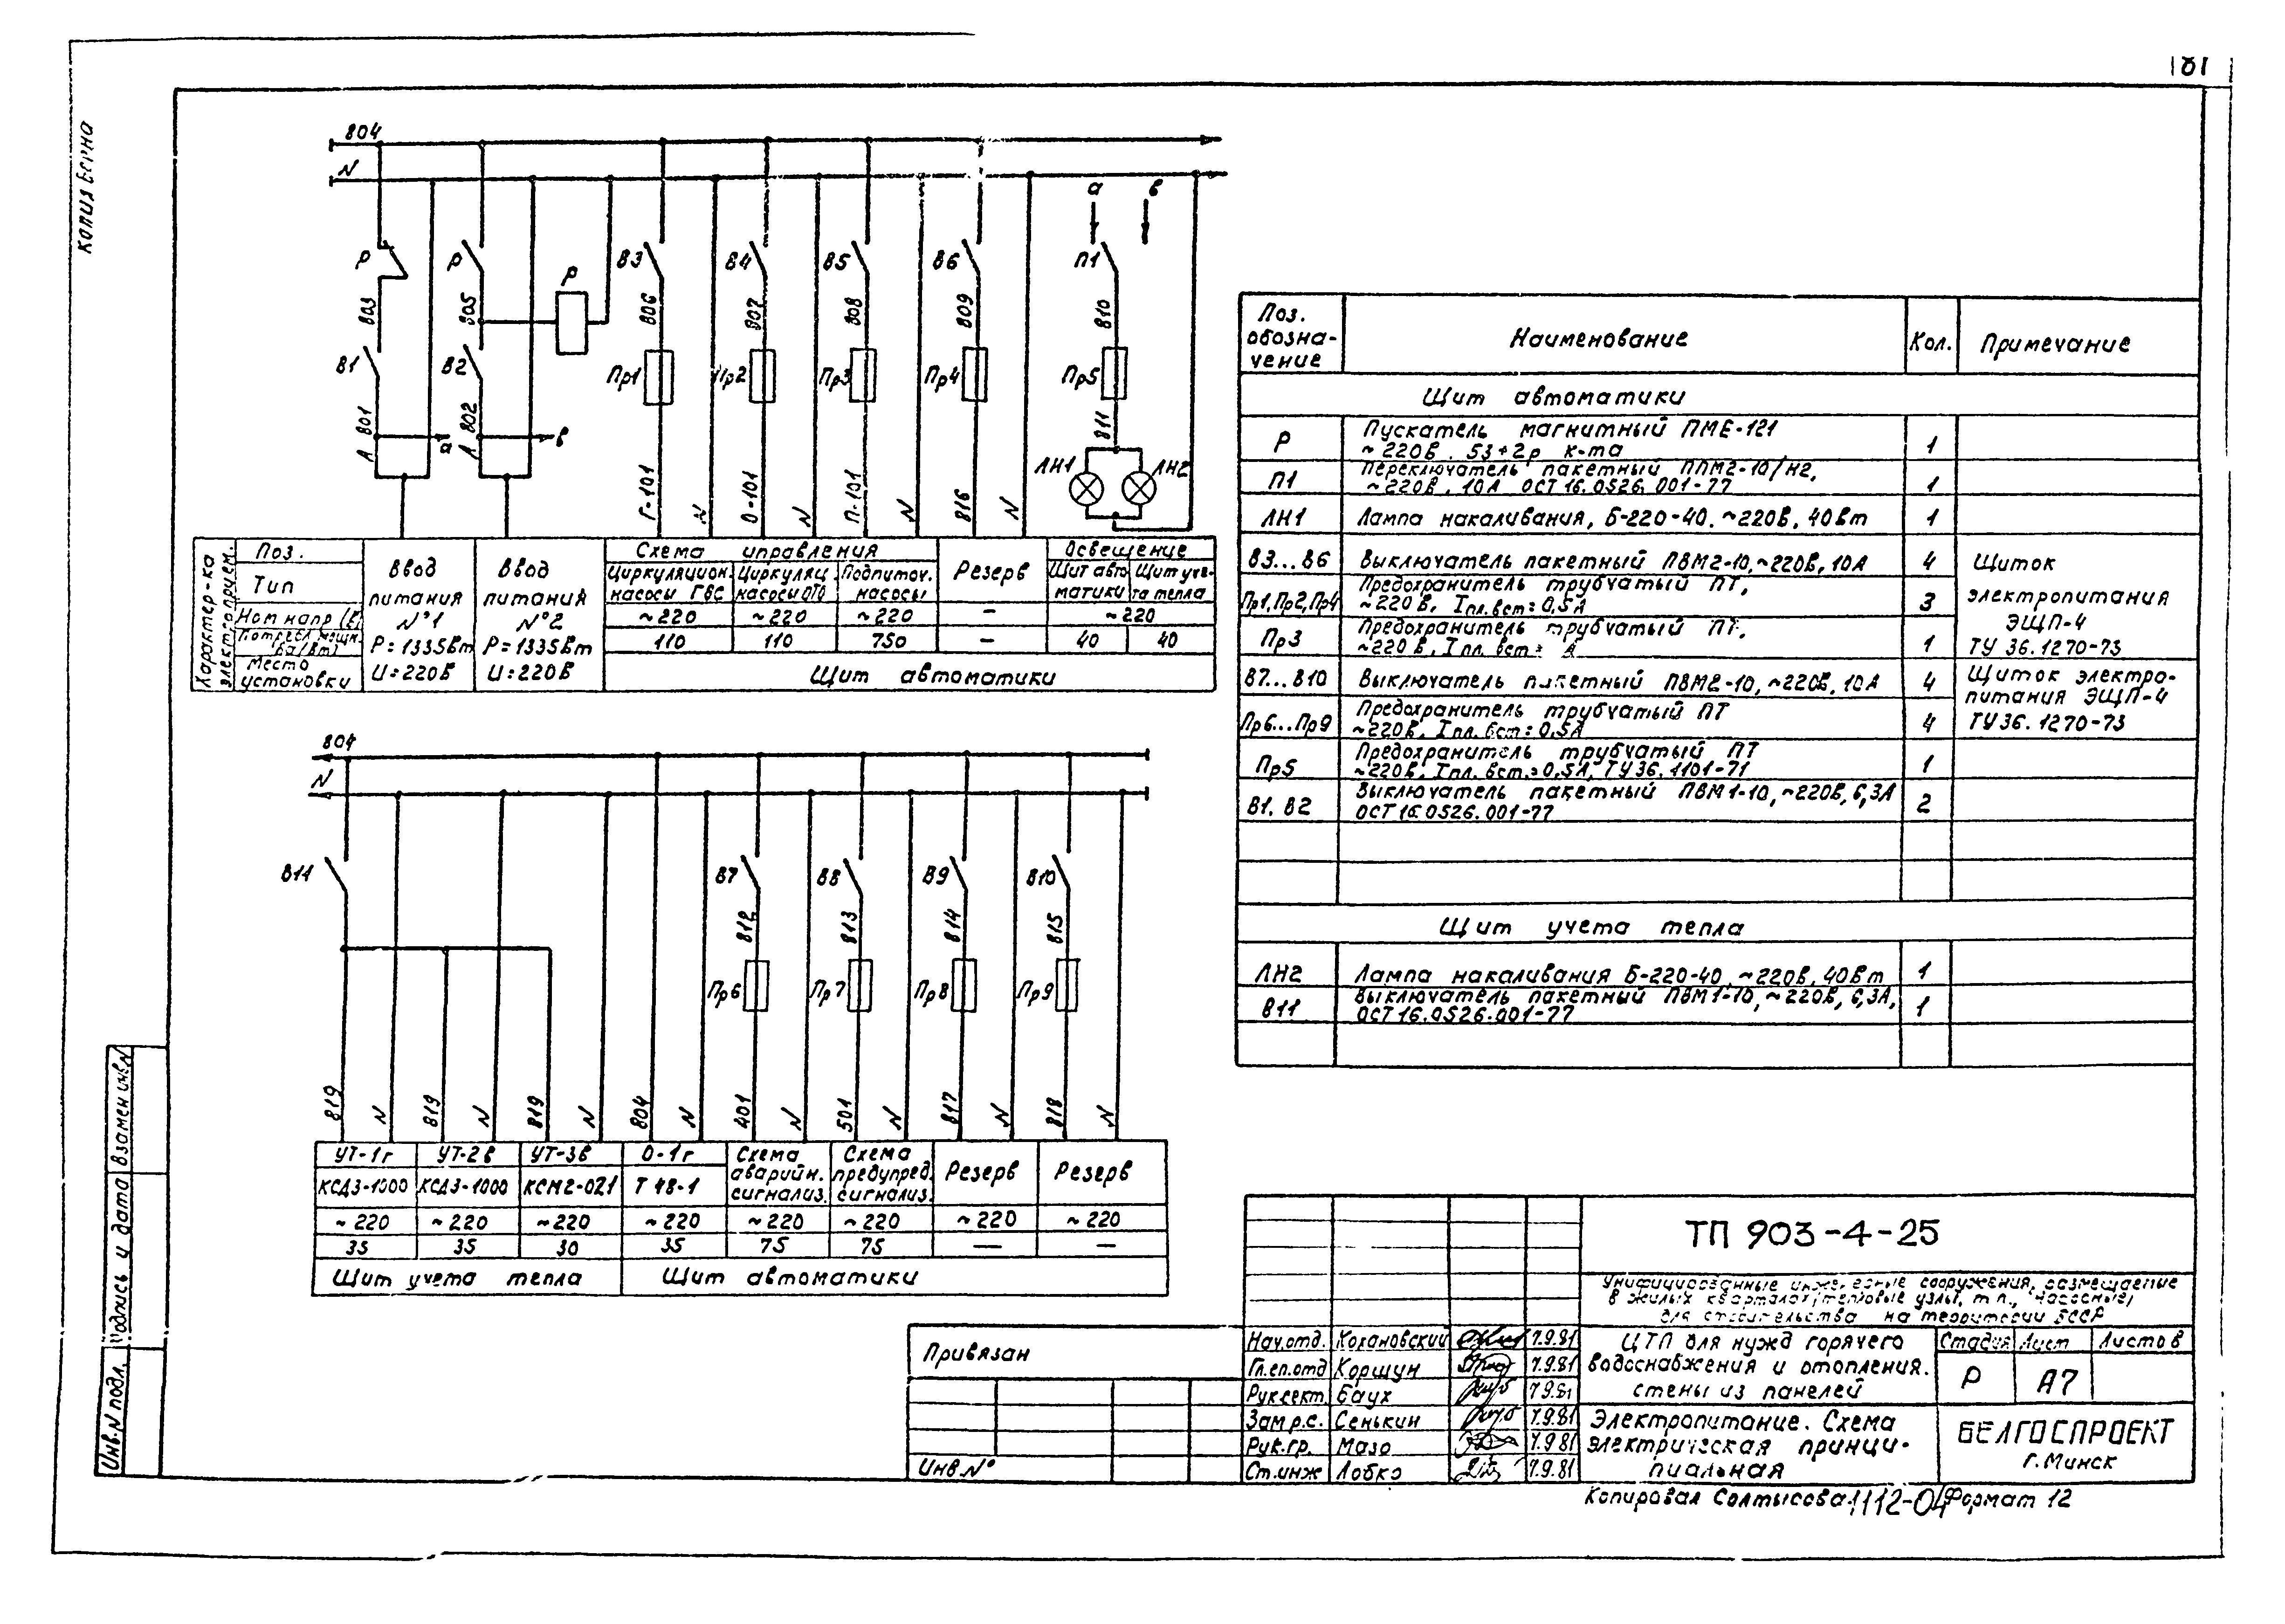 181
Копия верна
804
N
а
в
Р
Р
Р
В3
В4
В5
В6
П1
803
805
806
807
808
809
810
В1
В2
Пр1
Пр2
Пр3
Пр4
Пр5
801
802
811
А
А
а
в
ЛН1
ЛН2
Г-101
N
О-101
N
П-101
N
816
N
Характер-ка электроприем.
Поз.
Тип
Ном напр (В)
Потребл. мощн. Ва (Вт)
Место установки
Ввод питания №1
Р=1335Вт
U=220В
Ввод питания №2
Р=1335Вт
U=220В
Схема управления
Резерв
Освещение
Циркуляцион. насосы ГВС
Циркуляц. насосы ОТО
Подпиточ. насосы
Щит автоматики
Щит учета тепла
~220
~220
~220
–
~220
110
110
750
–
40
40
Щит автоматики
804
N
В11
В7
В8
В9
В10
812
813
814
815
Пр6
Пр7
Пр8
Пр9
819
N
819
N
819
N
804
N
401
N
501
N
817
N
818
N
УТ-1г
УТ-2в
УТ-3в
О-1г
Схема аварийн. сигнализ.
Схема предупред. сигнализ.
Резерв
Резерв
КСД3-1000
КСД3-1000
КСМ2-021
Т 48-1
~220
~220
~220
~220
~220
~220
~220
~220
35
35
30
35
75
75
—
–
Щит учета тепла
Щит автоматики
Поз. обозна-
чение
Наименование
Кол.
Примечание
Щит автоматики
Р
Пускатель магнитный ПМЕ-121
~220В. 5з+2р к-та
1
П1
Переключатель пакетный ППМ2-10/Н2,
~220В, 10А ОСТ 16.0526.001-77
1
ЛН1
Лампа накаливания, Б-220-40. ~220В, 40Вт
1
В3...В6
Выключатель пакетный ПВМ2-10, ~220В, 10А
4
Щиток
электропитания
ЭЩП-4
ТУ 36.1270-73
Пр1, Пр2, Пр4
Предохранитель трубчатый ПТ,
~220В, Iпл.вст=0,5А
3
Пр3
Предохранитель трубчатый ПТ,
~220В, Iпл.вст= А
1
В7...В10
Выключатель пакетный ПВМ2-10, ~220В, 10А
4
Щиток электро-
питания ЭЩП-4
ТУ36.1270-73
Пр6...Пр9
Предохранитель трубчатый ПТ
~220В, Iпл.вст=0,5А
4
Пр5
Предохранитель трубчатый ПТ
~220В, Iпл.вст.=0,5А, ТУ36.1101-71
1
В1, В2
Выключатель пакетный ПВМ1-10, ~220В, 6,3А
ОСТ16.0526.001-77
2
Щит учета тепла
ЛН2
Лампа накаливания Б-220-40, ~220В, 40Вт
1
В11
Выключатель пакетный ПВМ1-10, ~220В, 6,3А,
ОСТ16.0526.001-77
1
ТП 903-4-25
Унифицированные инженерные сооружения, размещаемые
в жилых кварталах (тепловые узлы, тп., насосные)
для строительства на территории БССР
Нач.отд. Кохановский 7.9.81
Гл.сп.отд Коршун 7.9.81
Рук.сект. Баух 7.9.81
Зам р.с. Сенькин 7.9.81
Рук.гр. Мазо 7.9.81
Ст.инж Лобко 7.9.81
ЦТП для нужд горячего
водоснабжения и отопления.
Стены из панелей
Стадия
Лист
Листов
Р
А7
Электропитание. Схема
электрическая принци-
пиальная
БЕЛГОСПРОЕКТ
г. Минск
Привязан
Инв.№
Инв.N подл.
Подпись и дата
Взамен инв.N
Копировал Солтысова 1112-04 Формат 12